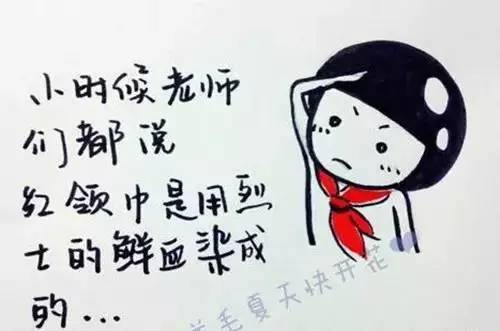 小时候老师
们都说
红领巾是用烈
士的鲜血染成
的...
毛夏天快开花